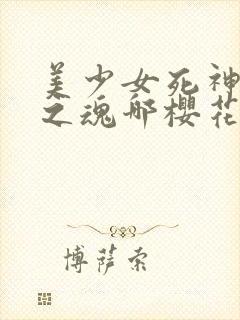 美少女死神
之魂哪樱花
博萨索